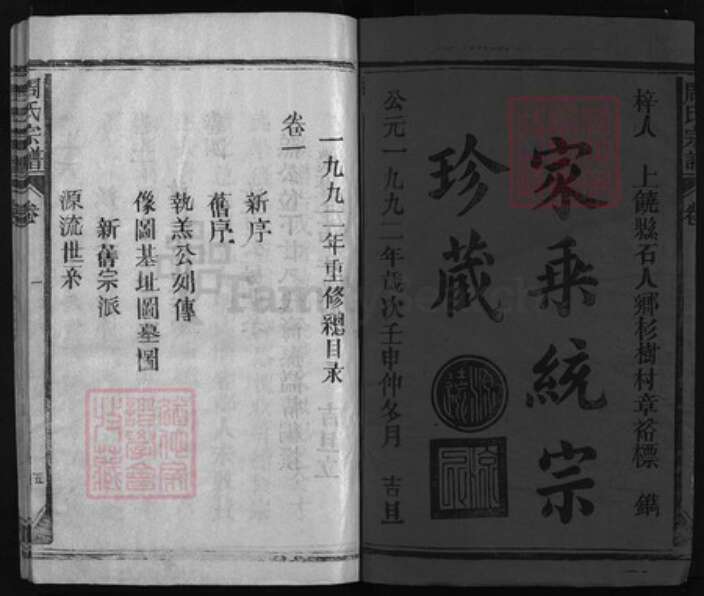 梓人 上饒縣石人鄉杉樹村章裕標 鐫
家乘統宗
珍藏
公元一九九二年歲次壬申仲冬月 吉旦
一九九二年重修總目录
卷一
新序
舊序
執羔公列傳
像圖基址圖墓圖
新舊宗派
源流世系
周氏宗譜
卷
一
五